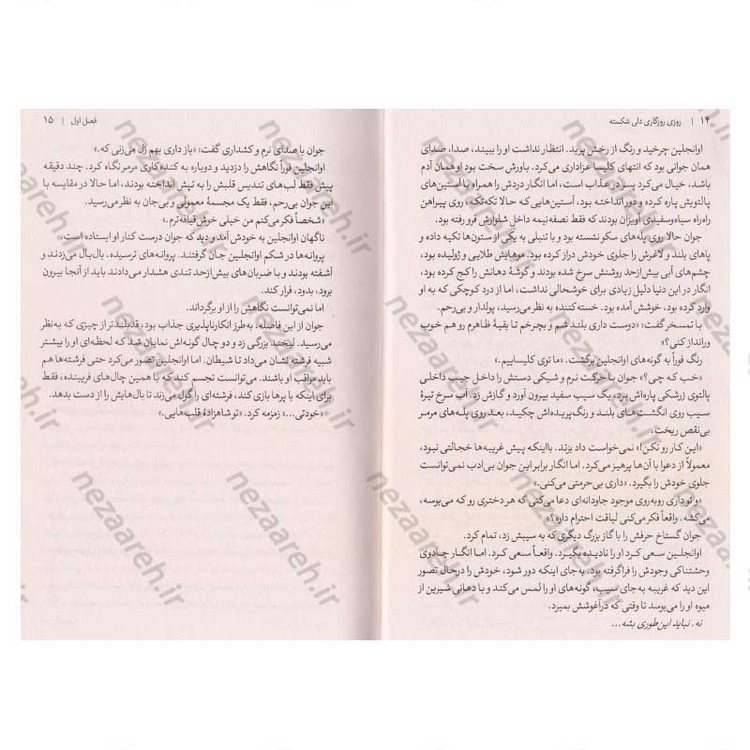 ۱۴ | روزی روزگاری دلی شکسته
اوانجلین چرخید و رنگ از رخش پرید. انتظار نداشت او را ببیند، صدا، صدای
همان جوانی بود که انتهای کلیسا عزاداری می‌کرد. باورش سخت بود او همان آدم
باشد، خیال می‌کرد پسر در عذاب است، اما انگار دردش را همراه با آستین‌های
پالتویش پاره کرده و دور انداخته بودند، آستین‌هایی که حالا تکه‌تکه، روی پیراهن
راه‌راه سیاه‌وسفیدی آویزان بودند که فقط نصفه‌نیمه داخل شلوارش فرو رفته بود.
جوان حالا روی پله‌های سکو نشسته بود و با تنبلی به یکی از ستون‌ها تکیه داده و
پاهای بلند و لاغرش را جلوی خودش دراز کرده بود. موهایش طلایی و ژولیده بود،
چشم‌های آبی بیش‌ازحد روشنش سرخ شده بودند و گوشهٔ دهانش را کج کرده بود،
انگار در این دنیا دلیل زیادی برای خوشحالی نداشت، اما از درد کوچکی که به او
وارد کرده بود، خوشش آمده بود. خسته‌کننده به نظر می‌رسید، پولدار و بی‌رحم.
با تمسخر گفت: «دوست داری بلند شم و بچرخم تا بقیهٔ ظاهرم رو هم خوب
ورانداز کنی؟»
رنگ فوراً به گونه‌های اوانجلین برگشت. «ما توی کلیساییم.»
«خب که چی؟» جوان با حرکت نرم و شیکی دستش را داخل جیب داخلی
پالتوی زرشکی پاره‌اش برد، یک سیب سفید بیرون آورد و گازش زد. آب سرخ تیرهٔ
سیب روی انگشت‌های بلند و رنگ‌پریده‌اش چکید، بعد روی پله‌های مرمر
بی‌نقص ریخت.
«این کار رو نکن!» نمی‌خواست داد بزند. بااینکه پیش غریبه‌ها خجالتی نبود،
معمولاً از دعوا با آن‌ها پرهیز می‌کرد. اما انگار برابر این جوان بی‌ادب نمی‌توانست
جلوی خودش را بگیرد. «داری بی‌حرمتی می‌کنی.»
«و تو داری روبه‌روی موجود جاودانه‌ای دعا می‌کنی که هر دختری رو که می‌بوسه،
می‌کشه. واقعاً فکر می‌کنی لیاقت احترام داره؟»
جوان گستاخ حرفش را با گاز بزرگ دیگری که به سیبش زد، تمام کرد.
اوانجلین سعی کرد او را نادیده بگیرد. واقعاً سعی کرد. اما انگار جادوی
وحشتناکی وجودش را فراگرفته بود. به‌جای اینکه دور شود، خودش را درحال تصور
این دید که غریبه به‌جای سیب، گونه‌های او را لمس می‌کند و با دهانی شیرین از
میوه او را می‌بوسد تا وقتی که در آغوشش بمیرد.
نه. نباید این‌طوری بشه...
فصل اول | ۱۵
جوان با صدای نرم و کشداری گفت: «باز داری بهم زل می‌زنی که.»
اوانجلین فوراً نگاهش را دزدید و دوباره به کنده‌کاری مرمر نگاه کرد. چند دقیقه
پیش فقط لب‌های تندیس قلبش را به تپش انداخته بودند، اما حالا در مقایسه با
این جوان بی‌رحم، فقط یک مجسمهٔ معمولی و بی‌جان به نظر می‌رسید.
«شخصاً فکر می‌کنم من خیلی خوش‌قیافه‌ترم.»
ناگهان اوانجلین به خودش آمد و دید که جوان درست کنار او ایستاده است.
پروانه‌ها در شکم اوانجلین جان گرفتند. پروانه‌های ترسیده. بال‌بال می‌زدند و
آشفته بودند و با ضربان‌های بیش‌ازحد تندی هشدار می‌دادند باید از آنجا بیرون
برود، بدود، فرار کند.
اما نمی‌توانست نگاهش را از او برگرداند.
جوان از این فاصله، به‌طرز انکارناپذیری جذاب بود، قدبلندتر از چیزی که به‌نظر
می‌رسید. لبخند بزرگی زد و دو چال گونه‌اش نمایان شد که لحظه‌ای او را بیشتر
شبیه فرشته نشان می‌داد تا شیطان. اما اوانجلین تصور می‌کرد حتی فرشته‌ها هم
باید مراقب او باشند. می‌توانست تجسم کند که با همین چال‌های فریبنده، فقط
برای اینکه با پرها بازی کند، فرشته‌ای را گول می‌زند تا بال‌هایش را از دست بدهد.
«خودتی...» زمزمه کرد. «تو شاهزادهٔ قلب‌هایی.»
nezaareh.ir